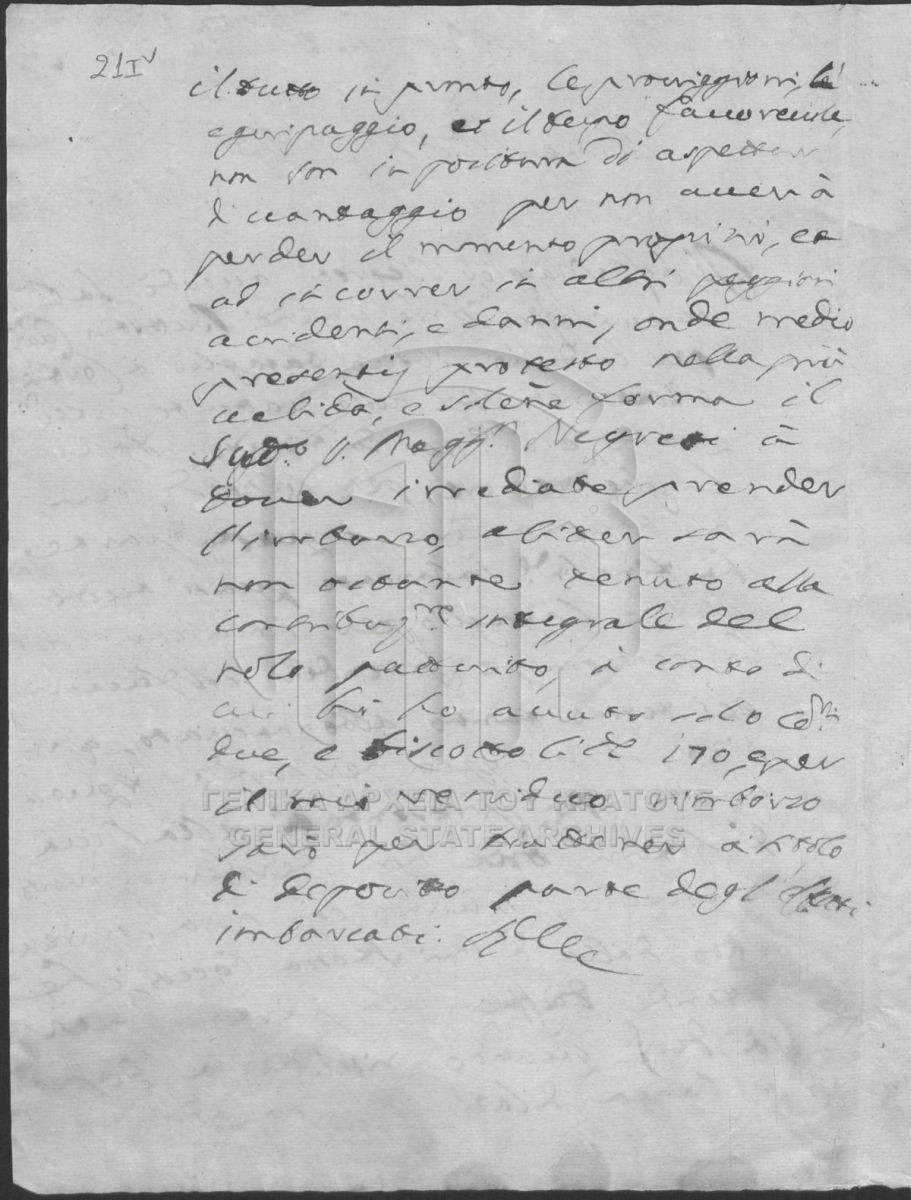 211v
il tutto in pronto, le proviggioni, la
equipaggio, et il tempo favorevole,
non son in positura di aspettar
di vantaggio per non avver à
perder il momento proprizio, et
ad incorrer in altri peggiori
accidenti, e danni, onde medio
presenti protesto nella più
debida, e forma il
Sudto S. Maggr. Negreti à
dover imediate prender
l'imbarzo, aliter sarà
non ostante tenuto alla
contribuzne integrale del
nolo pattuito, à conto di
cui hò avuto solo
due, e biscotto 170, e per
il mio residuo rimborzo
sarò per tratener à titolo
di deposito parte degl'
imbarcati.
ΓΕΝΙΚΑ ΑΡΧΕΙΑ ΤΟΥ ΚΡΑΤΟΥΣ
GENERAL STATE ARCHIVES